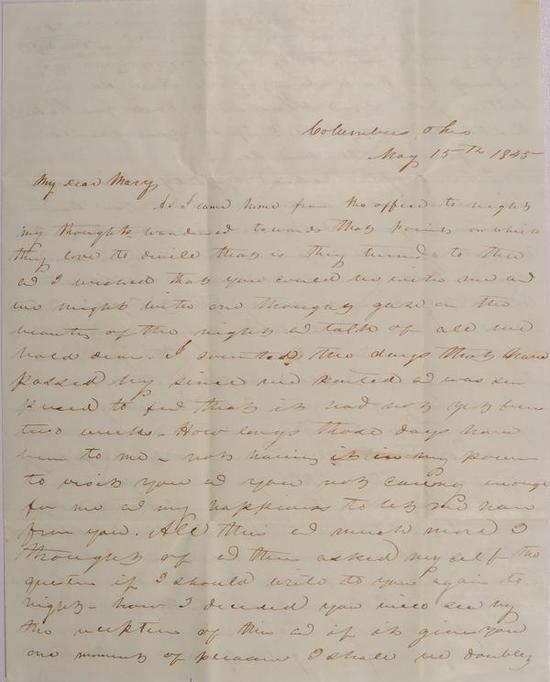 Columbus Ohio
May 15th 1845
My dear Mary
As I came home from the office to night
my thoughts wandered towards that point on which
they love to dwell that is they turned to thee
ad I wished that you could be with me ad
we might with one thought gaze on the
beauties of the night ad talk of all we
hold dear. I counted the days that have
passed by since we parted ad was sur
prised to find that it had not yet been
two weeks. How long those days have
been to me - not having it in my power
to visit you ad you not caring enough
for me ad my happiness to let me hear
from you. All this ad much more I
thought of ad then asked myself the
question if I should write to you again to
night - how I decided you will see by
the reception of this ad if it gives you
one moment of pleasure I shall be doubly